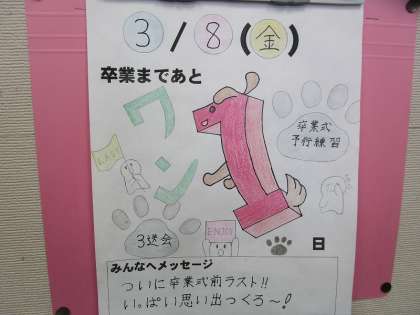 3/8(金)
卒業まであと
ワン
1
日
卒業式
予行練習
LAST
3送会
ENJOY
みんなへメッセージ
ついに卒業式前ラスト!!
いっぱい思い出つくろ〜!